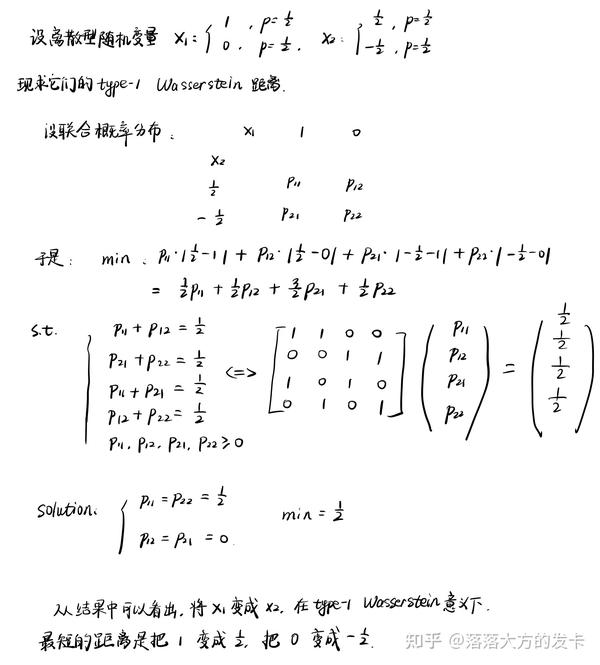 设离散型随机变量 X₁: { 1, p=1/2; 0, p=1/2. X₂: { 1/2, p=1/2; -1/2, p=1/2
现求它们的type-1 Wasserstein 距离.
设联合概率分布:
X₁ 1 0
X₂
1/2 P₁₁ P₁₂
-1/2 P₂₁ P₂₂
于是: min: P₁₁·|1/2-1| + P₁₂·|1/2-0| + P₂₁·|-1/2-1| + P₂₂·|-1/2-0|
= 1/2P₁₁ + 1/2P₁₂ + 3/2P₂₁ + 1/2P₂₂
s.t.
P₁₁ + P₁₂ = 1/2
P₂₁ + P₂₂ = 1/2
P₁₁ + P₂₁ = 1/2
P₁₂ + P₂₂ = 1/2
P₁₁, P₁₂, P₂₁, P₂₂ ≥ 0
<=>
[1 1 0 0
0 0 1 1
1 0 1 0
0 1 0 1]
(P₁₁
P₁₂
P₂₁
P₂₂)
=
(1/2
1/2
1/2
1/2)
solution: { P₁₁ = P₂₂ = 1/2
P₁₂ = P₂₁ = 0.
min = 1/2
从结果中可以看出, 将 X₁ 变成 X₂, 在 type-1 Wasserstein 意义下,
最短的距离是把 1 变成 1/2, 把 0 变成 -1/2.
知乎 @落落大方的发卡